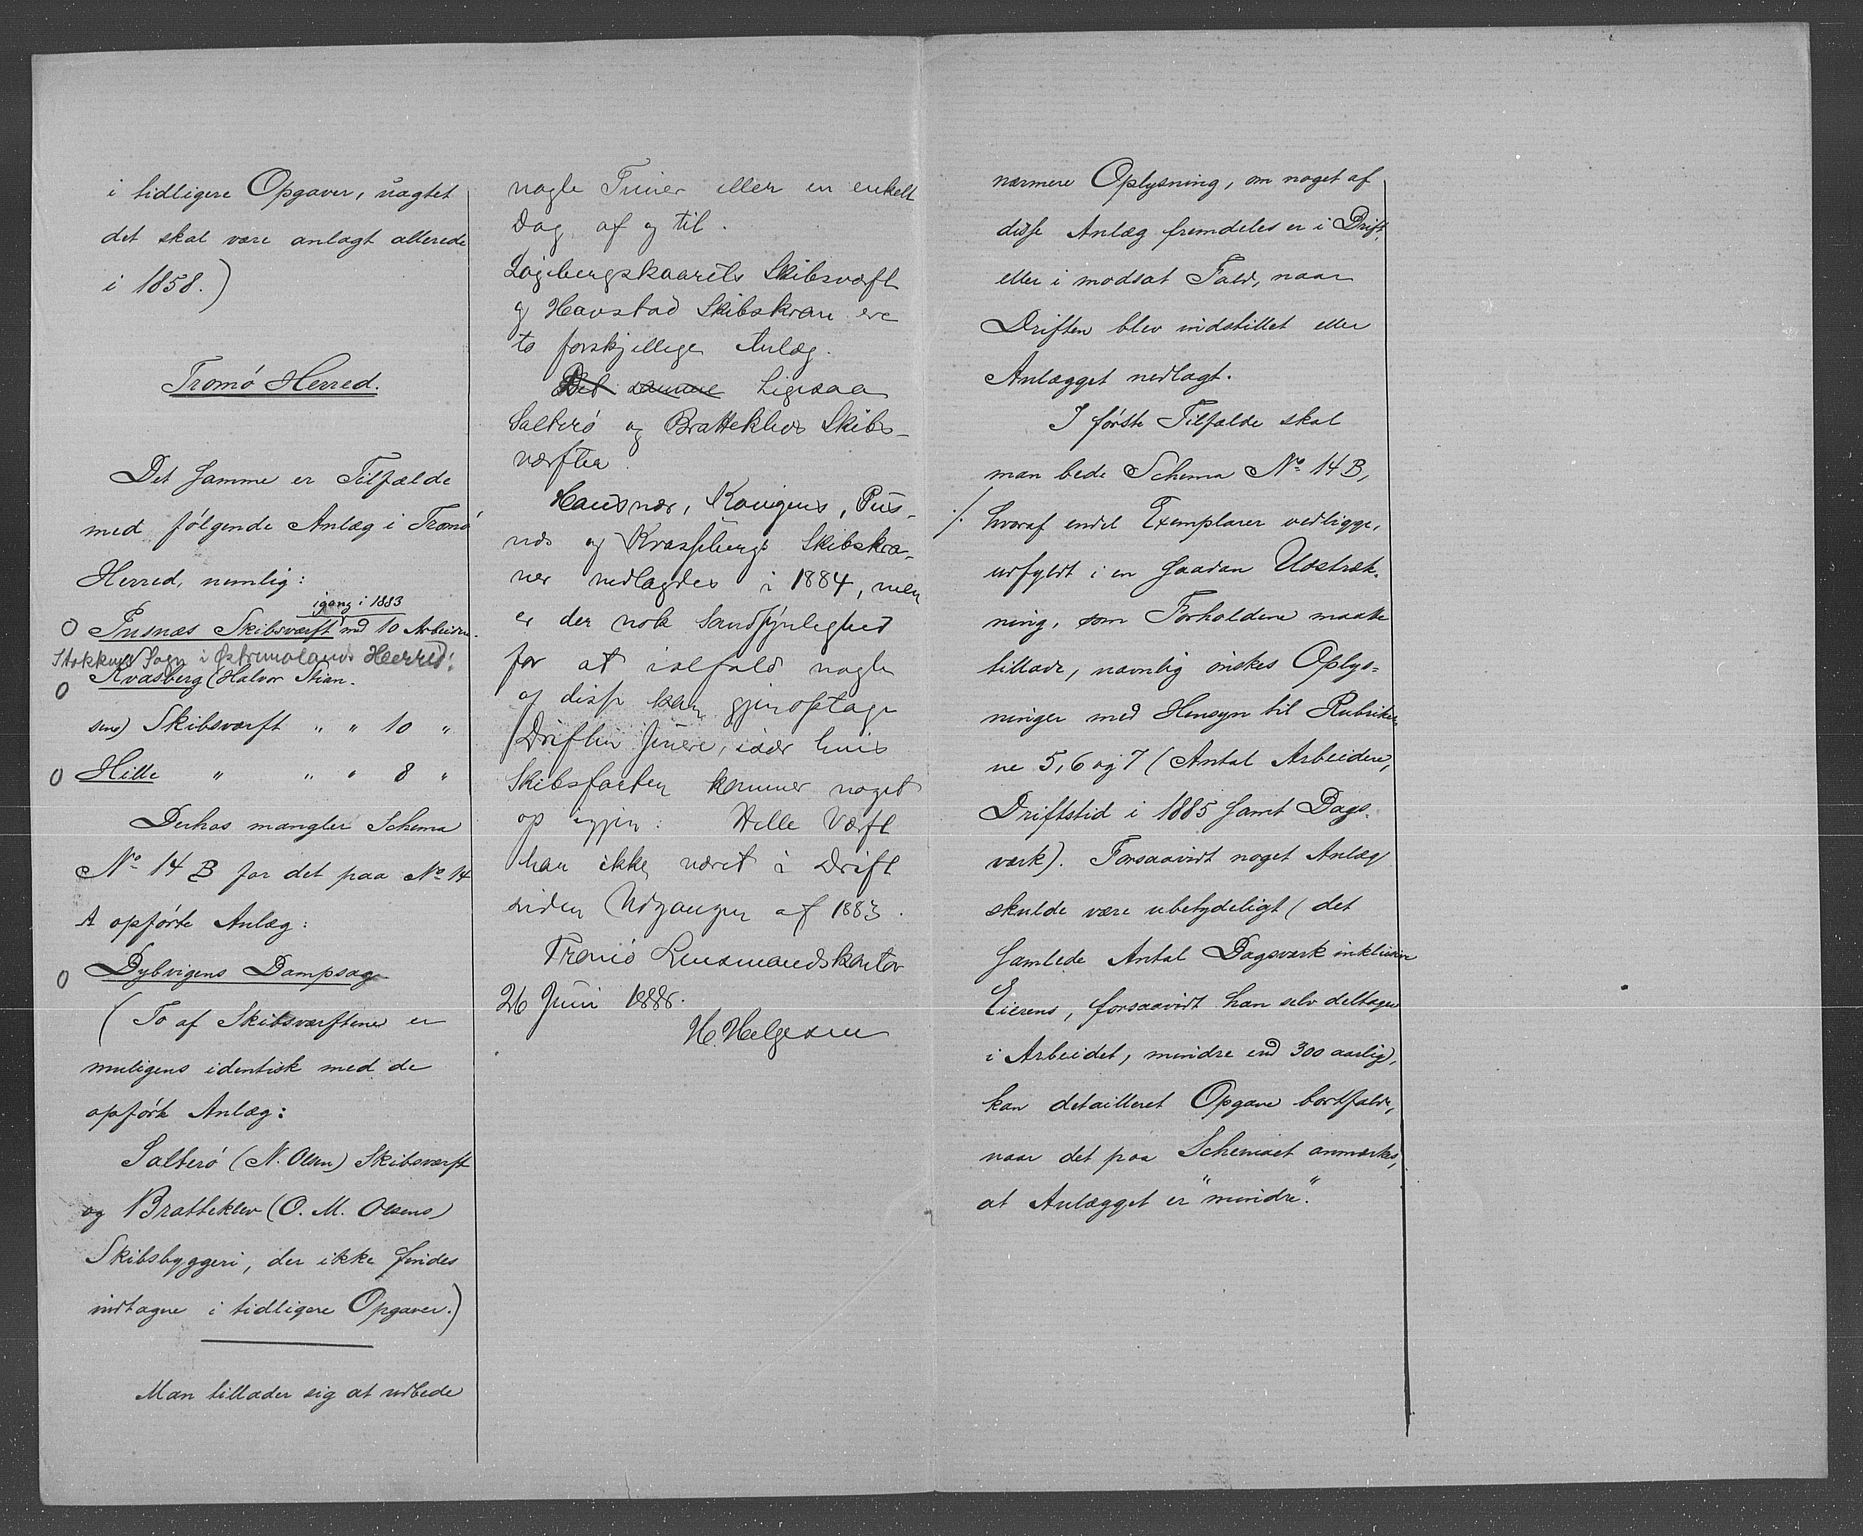 i tidligere Opgaver, uagtet
det skal være anlagt allerede
i 1858.)
Tromø Herred.
Det samme er Tilfælde
med følgende Anlæg i Tromø
Herred, nemlig:
igang i 1883
O Pusnæs Skibsværft med 10 Arbeidere.
Stokken Sogn i Østremolands Herred!
O Kvasberg (Halvor Stian-
sens) Skibsværft " " 10 "
O Hille " " " 8 "
Derhos mangler Schema
No 14 B for det paa No 14
A opførte Anlæg:
O Dybvigens Dampsag
(To af Skibsværfterne er
muligens identisk med de
opførte Anlæg:
Salterø (N. Olsen) Skibsværft
og Bratteklev (O. M. Olsens)
Skibsbyggeri, der ikke findes
indtagne i tidligere Opgaver.)
Man tillader sig at udbede
nogle Timer eller en enkelt
Dag af og til.
Skibsværft
og Havstad Skibskran ere
to forskjellige Anlæg.
Det samme Ligesaa
Salterø og Bratteklevs Skibs-
værfter.
Hausnær, Kongens, Pus-
næs og Kvassebergs Skibskra-
ner nedlagdes i 1884, men
er der nok Sandsynlighed
for at ialfald nogle
af disse kan gjenoptage
Driften senere, især hvis
Skibsfarten kommer noget
op igjen. Hille Værft
har ikke været i Drift
siden Udgangen af 1883.
Tromø Lensmandskontor
26 Juni 1886.
H. Helgesen
nærmere Oplysning, om noget af
disse Anlæg fremdeles er i Drift,
eller i modsat Fald, naar
Driften blev indstillet eller
Anlægget nedlagt.
I første Tilfælde skal
man bede Schema No 14 B,
./. hvoraf endel Exemplarer vedligge,
udfyldt i en saadan Udstræk-
ning, som Forholdene maatte
tillade, navnlig ønskes Oplys-
ninger med Hensyn til Rubriker-
ne 5, 6 og 7 (Antal Arbeidere,
Driftstid i 1885 samt Dags-
værk). Forsaavidt noget Anlæg
skulde være ubetydeligt (det
samlede Antal Dagsværk inklusive
Eierens, forsaavidt han selv deltager
i Arbeidet, mindre end 300 aarlig),
kan detailleret Opgave bortfalde,
naar det paa Schemaet anmærkes,
at Anlægget er "mindre".